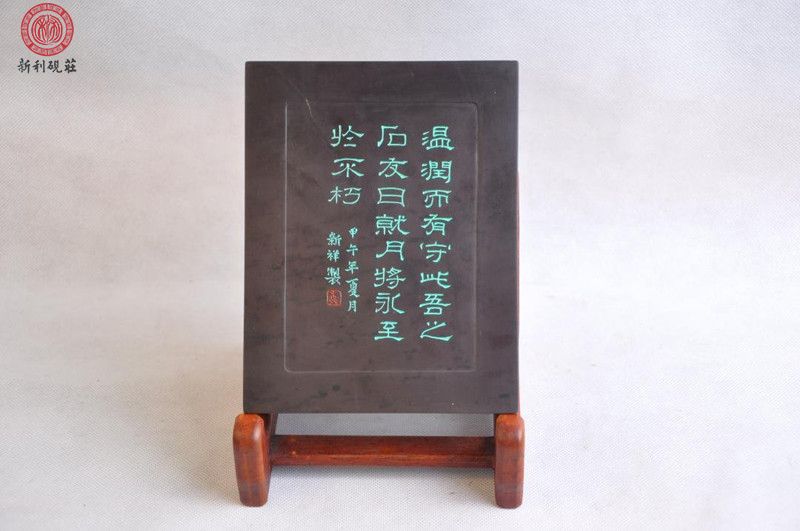 新利砚莊
温潤而有守此吾之
石友日就月將永至
於不朽
甲午年夏月
新祥製